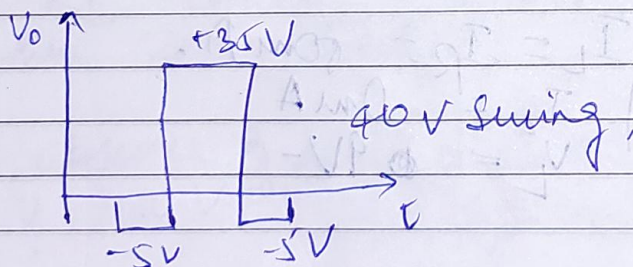 V₀
+35 V
40 V Swing,
t
-5V -5V